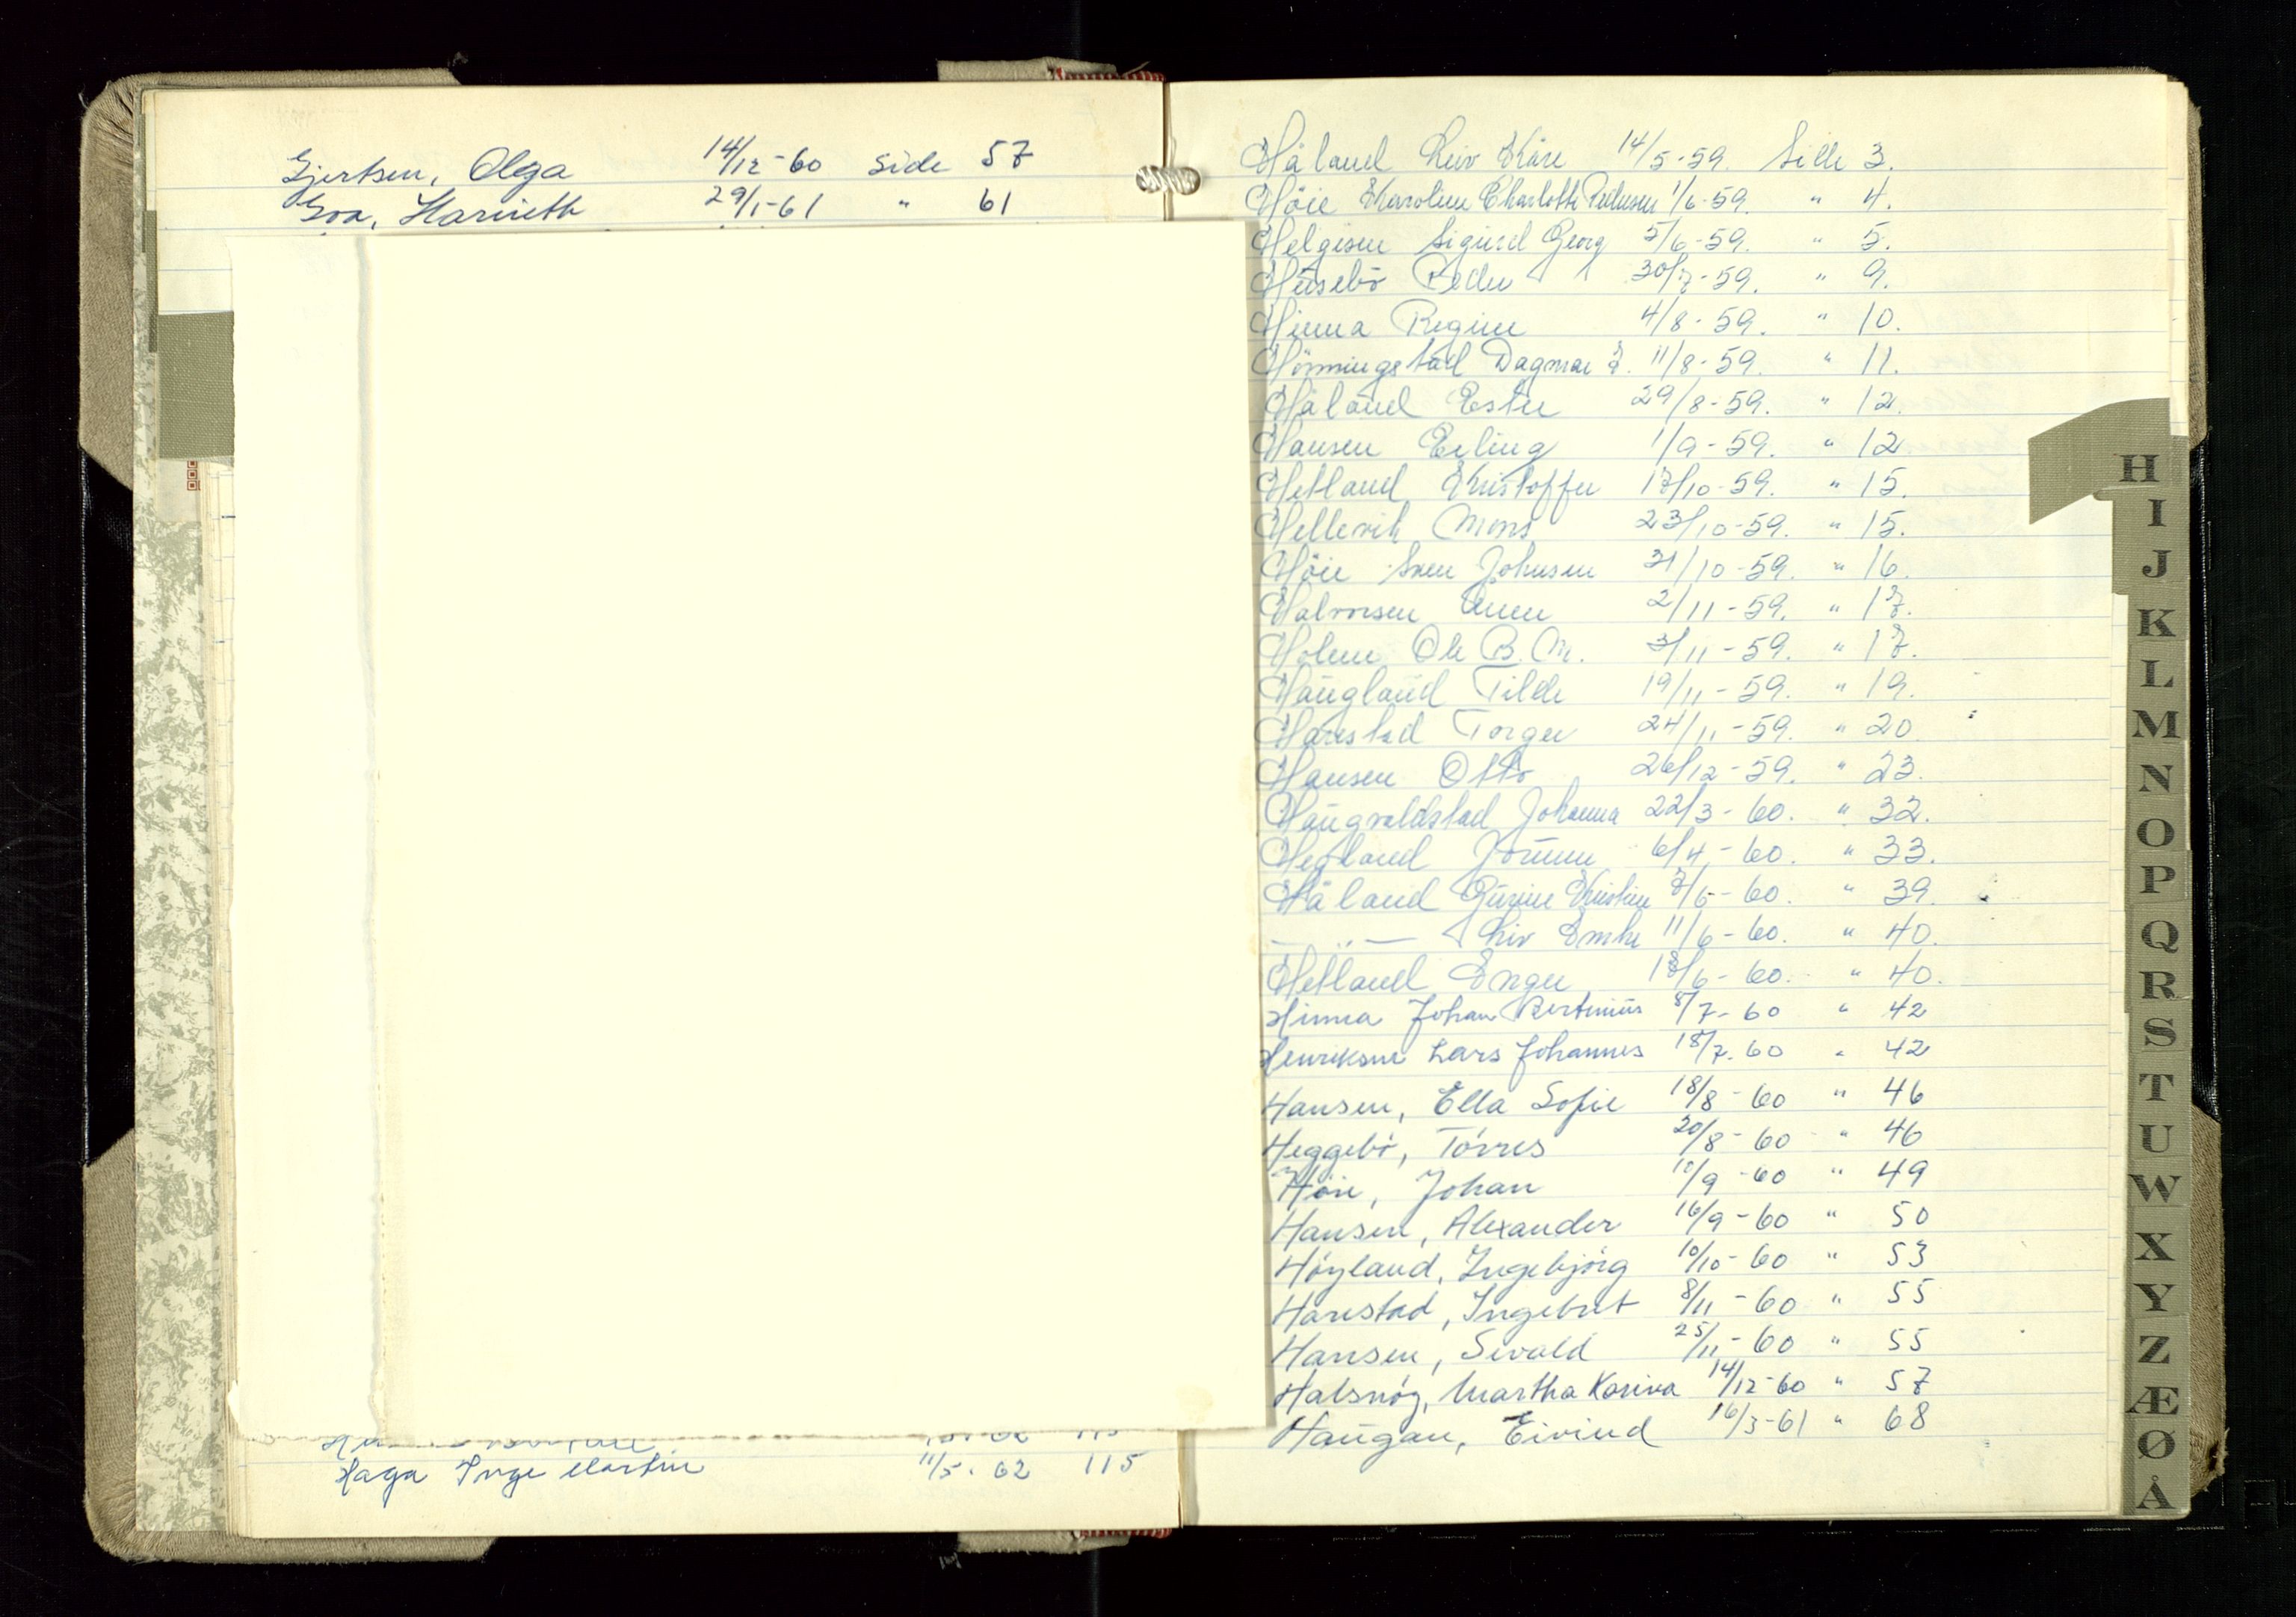 Gjertsen, Olga 14/12-60 side 57
Goa, Harrieth 29/1-61 " 61
Haga Inge Martin 11/5-62 115
Håland Liv Kåre 14/5-59. Side 3.
Höie Karoline Charlotte Pedersen 1/6-59. " 4.
Helgesen Sigurd Georg 5/6-59. " 5.
Husebö Peder 30/7-59. " 9.
Hinna Regine 4/8-59. " 10.
Hönningstad Dagmar J. 11/8-59. " 11.
Håland Ester 29/8-59. " 12.
Hansen Erling 1/9-59. " 12
Hetland Kristoffer 17/10-59. " 15.
Hellevik Mons 23/10-59. " 15.
Höie Sven Johnsen 31/10-59. " 16.
Halvorsen 2/11-59. " 17.
Holum Ole B. M. 3/11-59. " 17.
Haugland Tilde 19/11-59. " 19.
Harestad Torger 24/11-59. " 20
Hansen Otto 26/12-59. " 23.
Haugvaldstad Johanna 22/3-60. " 32.
Hegland Jorunn 6/4-60. " 33.
Håland Gurine Kristine 7/6-60. " 39.
— " — Liv 11/6-60. " 40.
Hetland Inger 18/6-60. " 40.
Hinna Johan Bertinius 8/7-60 " 42
Henriksen Lars Johannes 18/7-60 " 42
Hansen, Ella Sofie 18/8-60 " 46
Heggebö, Törres 20/8-60 " 46
Höie, Johan /9-60 " 49
Hansen, Alexander 16/9-60 " 50
Höyland, Ingebjörg 10/10-60 " 53
Harestad, Ingebret 8/11-60 " 55
Hansen, Sivald 25/11-60 " 55
Halsnöy, Martha Karina 14/12-60 " 57
Haugan, Eivind 16/3-61 " 68
H
I
J
K
L
M
N
O
P
Q
R
S
T
U
W
X
Y
Z
Æ
Ø
Å